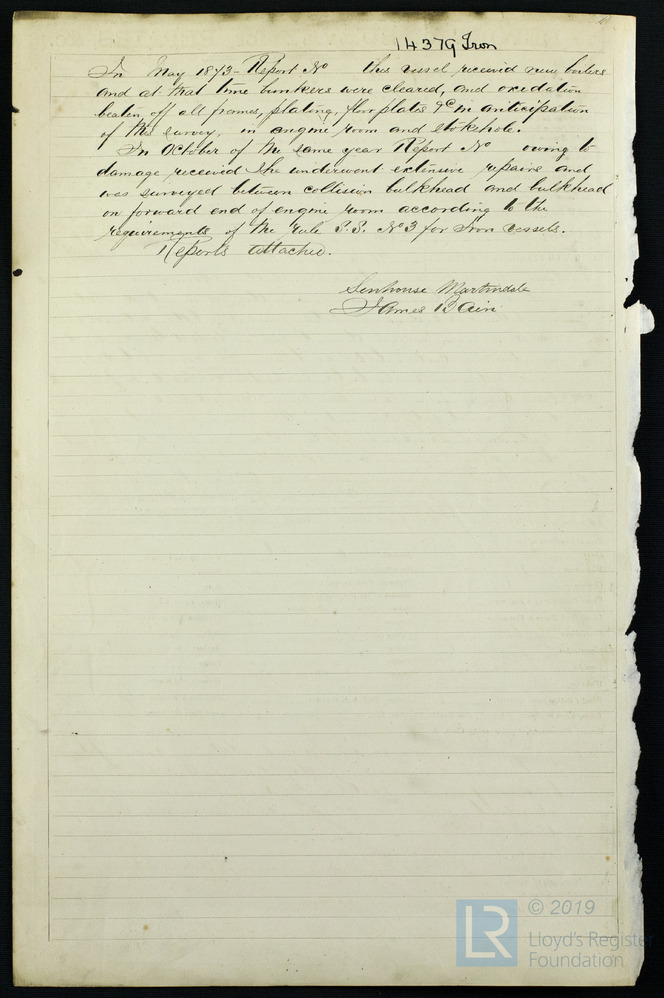 14379 Iron
In May 1873 - Report No this vessel received new boilers
and at that time bunkers were cleared, and oxidation
beaten off all frames, plating, floor plates &c in anticipation
of this survey, in engine room and stokehole.
In October of the same year Report No owing to
damage received she underwent extensive repairs and
was surveyed between collision bulkhead and bulkhead
on forward end of engine room according to the
requirements of the rule S.S. No 3 for Iron vessels.
Reports attached.
Senhouse Martindale
James Bain
LR
© 2019
Lloyd's Register
Foundation